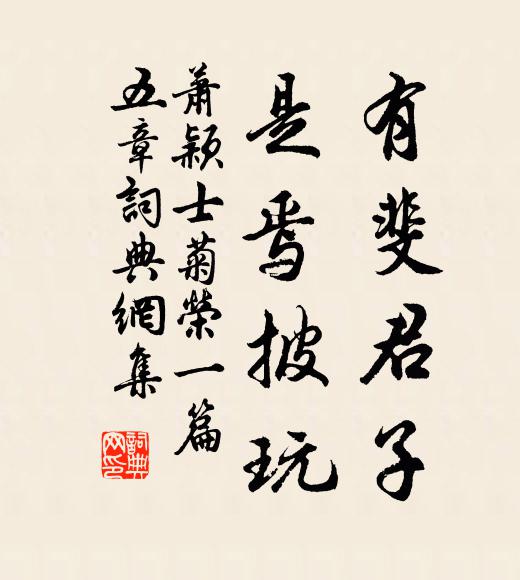 有斐君子
是焉披玩
萧颖士菊榮一篇
五章詞典網集
詞典
网印